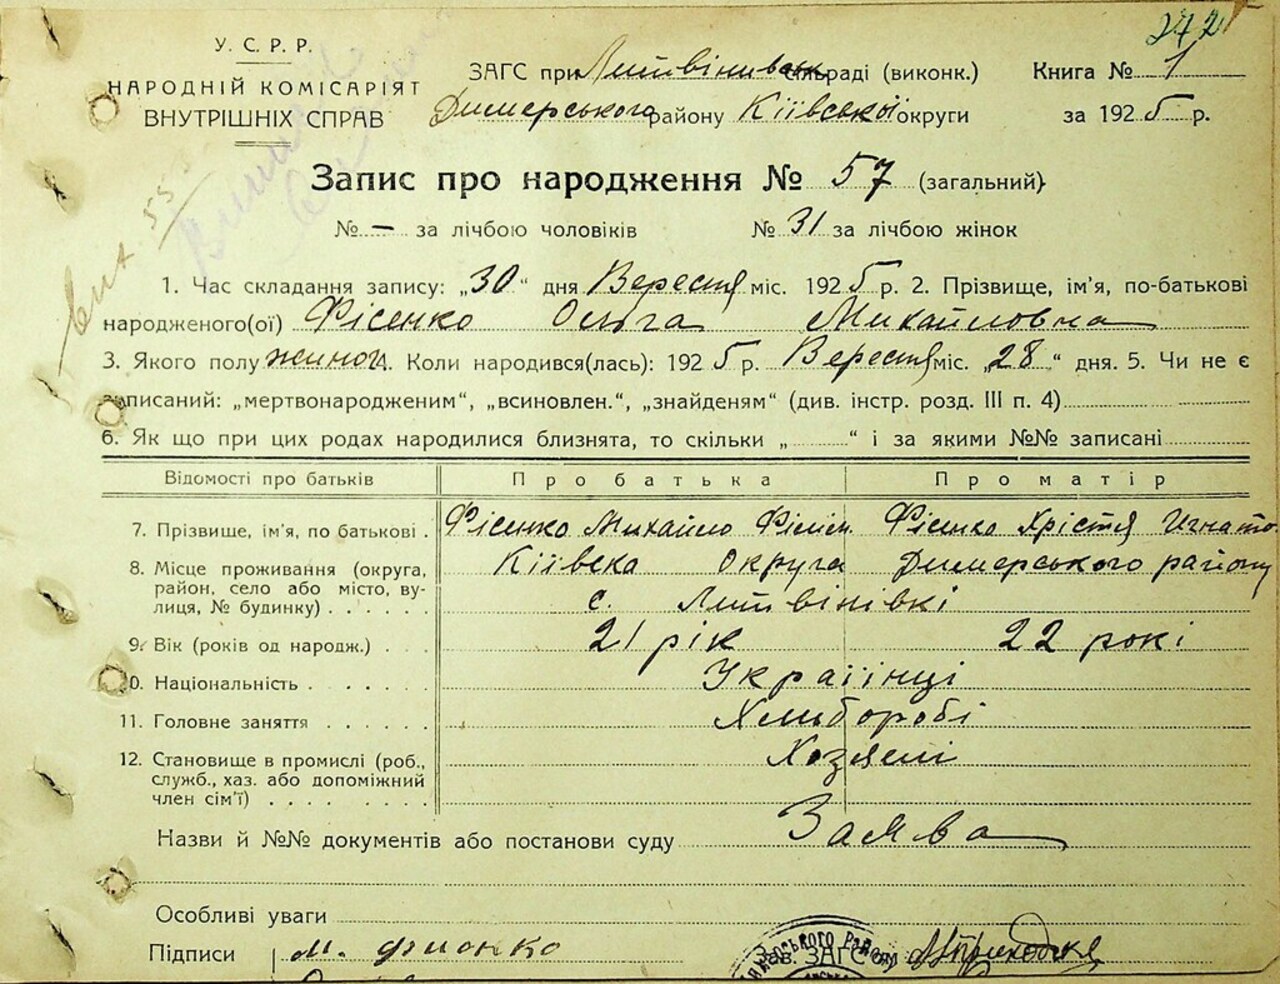 272
У. С. Р. Р.
НАРОДНІЙ КОМІСАРІЯТ
ВНУТРІШНІХ СПРАВ
ЗАГС при Литвінивськ сільраді (виконк.) Книга № 1
Димерського району Кіївської округи за 1925 р.
Запис про народження № 57 (загальний)
№ — за лічбою чоловіків № 31 за лічбою жінок
1. Час складання запису: „30“ дня Вересня міс. 1925 р. 2. Прізвище, ім'я, по-батькові
народженого(ої) Фісенко Ольга Михайловна
3. Якого полу жиноч. 4. Коли народився(лась): 1925 р. Вересня міс. „28“ дня. 5. Чи не є
записаний: „мертвонародженим“, „всиновлен.“, „знайденям“ (див. інстр. розд. III п. 4)
6. Як що при цих родах народилися близнята, то скільки „ “ і за якими №№ записані
Відомості про батьків Про батька Про матір
7. Прізвище, ім'я, по батькові . Фісенко Михайло Філім. Фісенко Хрістя Игнато
8. Місце проживання (округа, район, село або місто, вулиця, № будинку) . . . . . . Кіївска Округа Димерського району
с. Литвінівкі
9. Вік (років од народж.) . . . 21 рік 22 рокі
10. Національність . . . . . . Україінці
11. Головне заняття . . . . . . Хльборобі
12. Становище в промислі (роб., служб., хаз. або допоміжний член сім'ї) . . . . . . . . Хозяєві
Назви й №№ документів або постанови суду Заява
Особливі уваги
Підписи М. Зав. ЗАГС'ом